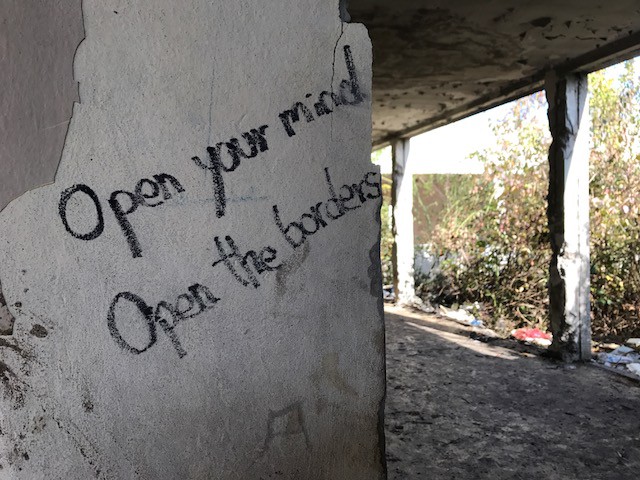 Open your mind
Open the borders